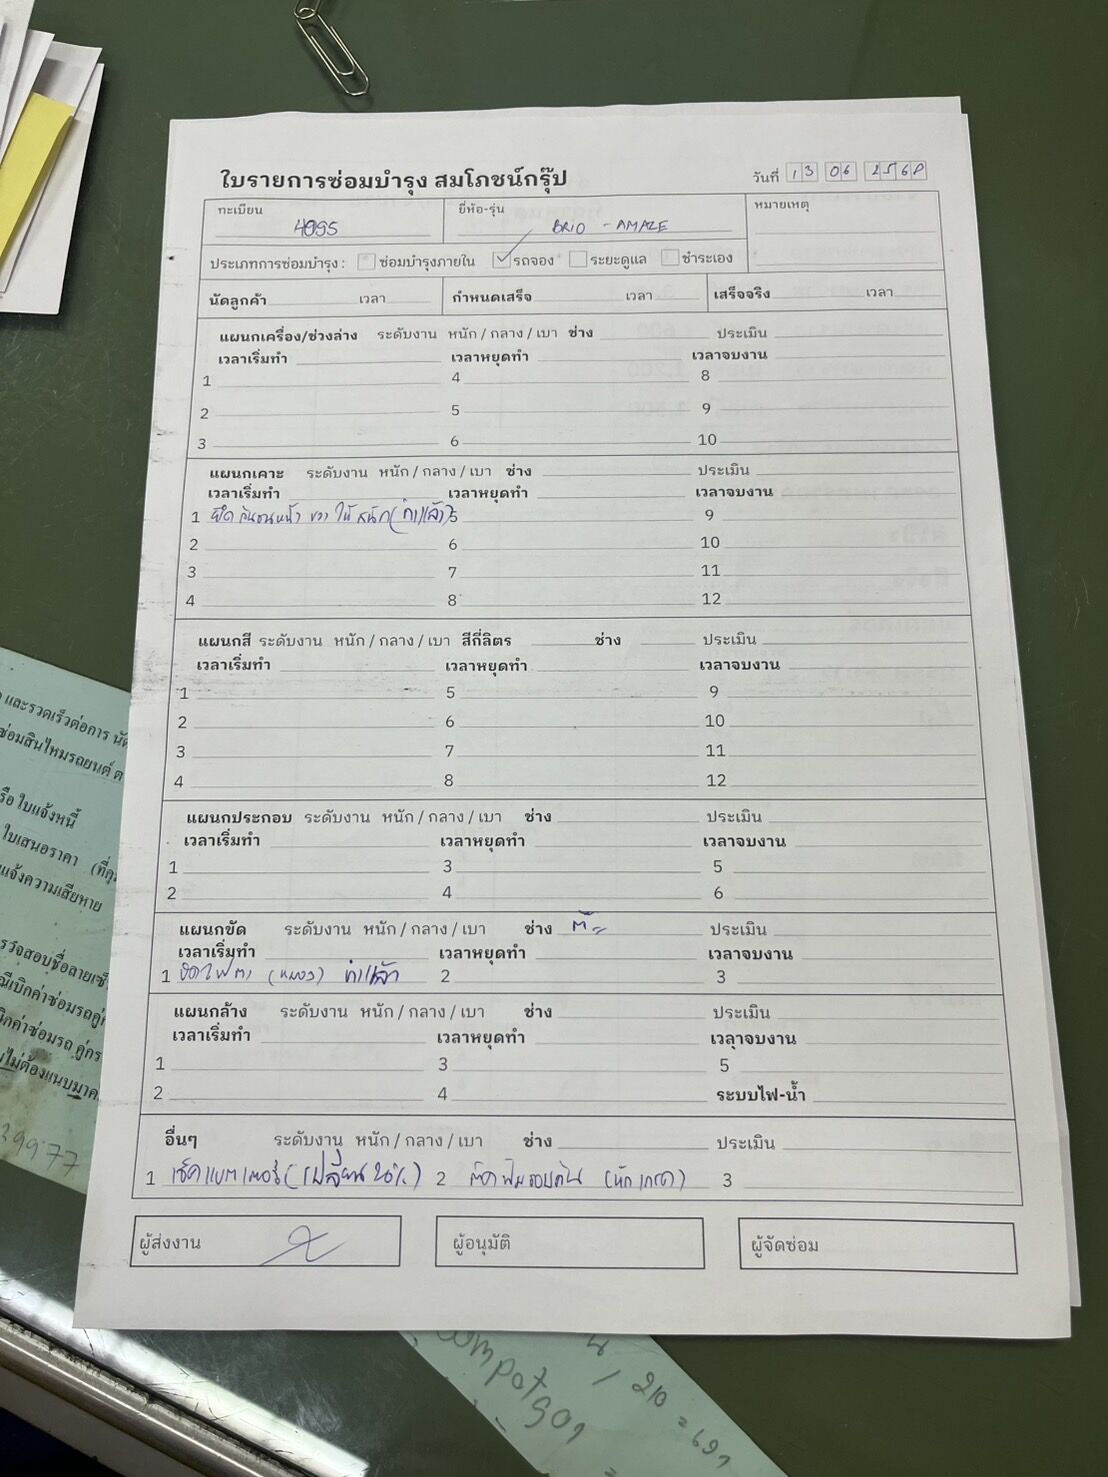 ใบรายการซ่อมบำรุง สมโภชน์กรุ๊ป
วันที่ 13 06 256
ทะเบียน 4995
ยี่ห้อ-รุ่น BRIO - AMAZE
หมายเหตุ
ประเภทการซ่อมบำรุง : ซ่อมบำรุงภายใน ✓ รถจอง ระยะดูแล ชำระเอง
นัดลูกค้า เวลา กำหนดเสร็จ เวลา เสร็จจริง เวลา
แผนกเครื่อง/ช่วงล่าง ระดับงาน หนัก / กลาง / เบา ช่าง ประเมิน
เวลาเริ่มทำ เวลาหยุดทำ เวลาจบงาน
1 4 8
2 5 9
3 6 10
แผนกเคาะ ระดับงาน หนัก / กลาง / เบา ช่าง ประเมิน
เวลาเริ่มทำ เวลาหยุดทำ เวลาจบงาน
1 ยึดกันชนหน้า ขวา ให้สนิท (ทำแล้ว) 5 9
2 6 10
3 7 11
4 8 12
แผนกสี ระดับงาน หนัก / กลาง / เบา สีกี่ลิตร ช่าง ประเมิน
เวลาเริ่มทำ เวลาหยุดทำ เวลาจบงาน
1 5 9
2 6 10
3 7 11
4 8 12
แผนกประกอบ ระดับงาน หนัก / กลาง / เบา ช่าง ประเมิน
เวลาเริ่มทำ เวลาหยุดทำ เวลาจบงาน
1 3 5
2 4 6
แผนกขัด ระดับงาน หนัก / กลาง / เบา ช่าง ประเมิน
เวลาเริ่มทำ เวลาหยุดทำ เวลาจบงาน
1 ขัดไฟตา (เหลือง) ทำแล้ว 2 3
แผนกล้าง ระดับงาน หนัก / กลาง / เบา ช่าง ประเมิน
เวลาเริ่มทำ เวลาหยุดทำ เวลาจบงาน
1 3 5
2 4 ระบบไฟ-น้ำ
อื่นๆ ระดับงาน หนัก / กลาง / เบา ช่าง ประเมิน
1 เช็คแบตเตอรี่ (เปลี่ยน 2 ติดฟิล์มรอบคัน 3
ผู้ส่งงาน ผู้อนุมัติ ผู้จัดซ่อม
และรวดเร็วต่อการ นัด
ซ่อมสินไหมรถยนต์
ใบแจ้งหนี้
ใบเสนอราคา
แจ้งความเสียหาย
ไม่ต้องแนบมา
29977
/ 210 =